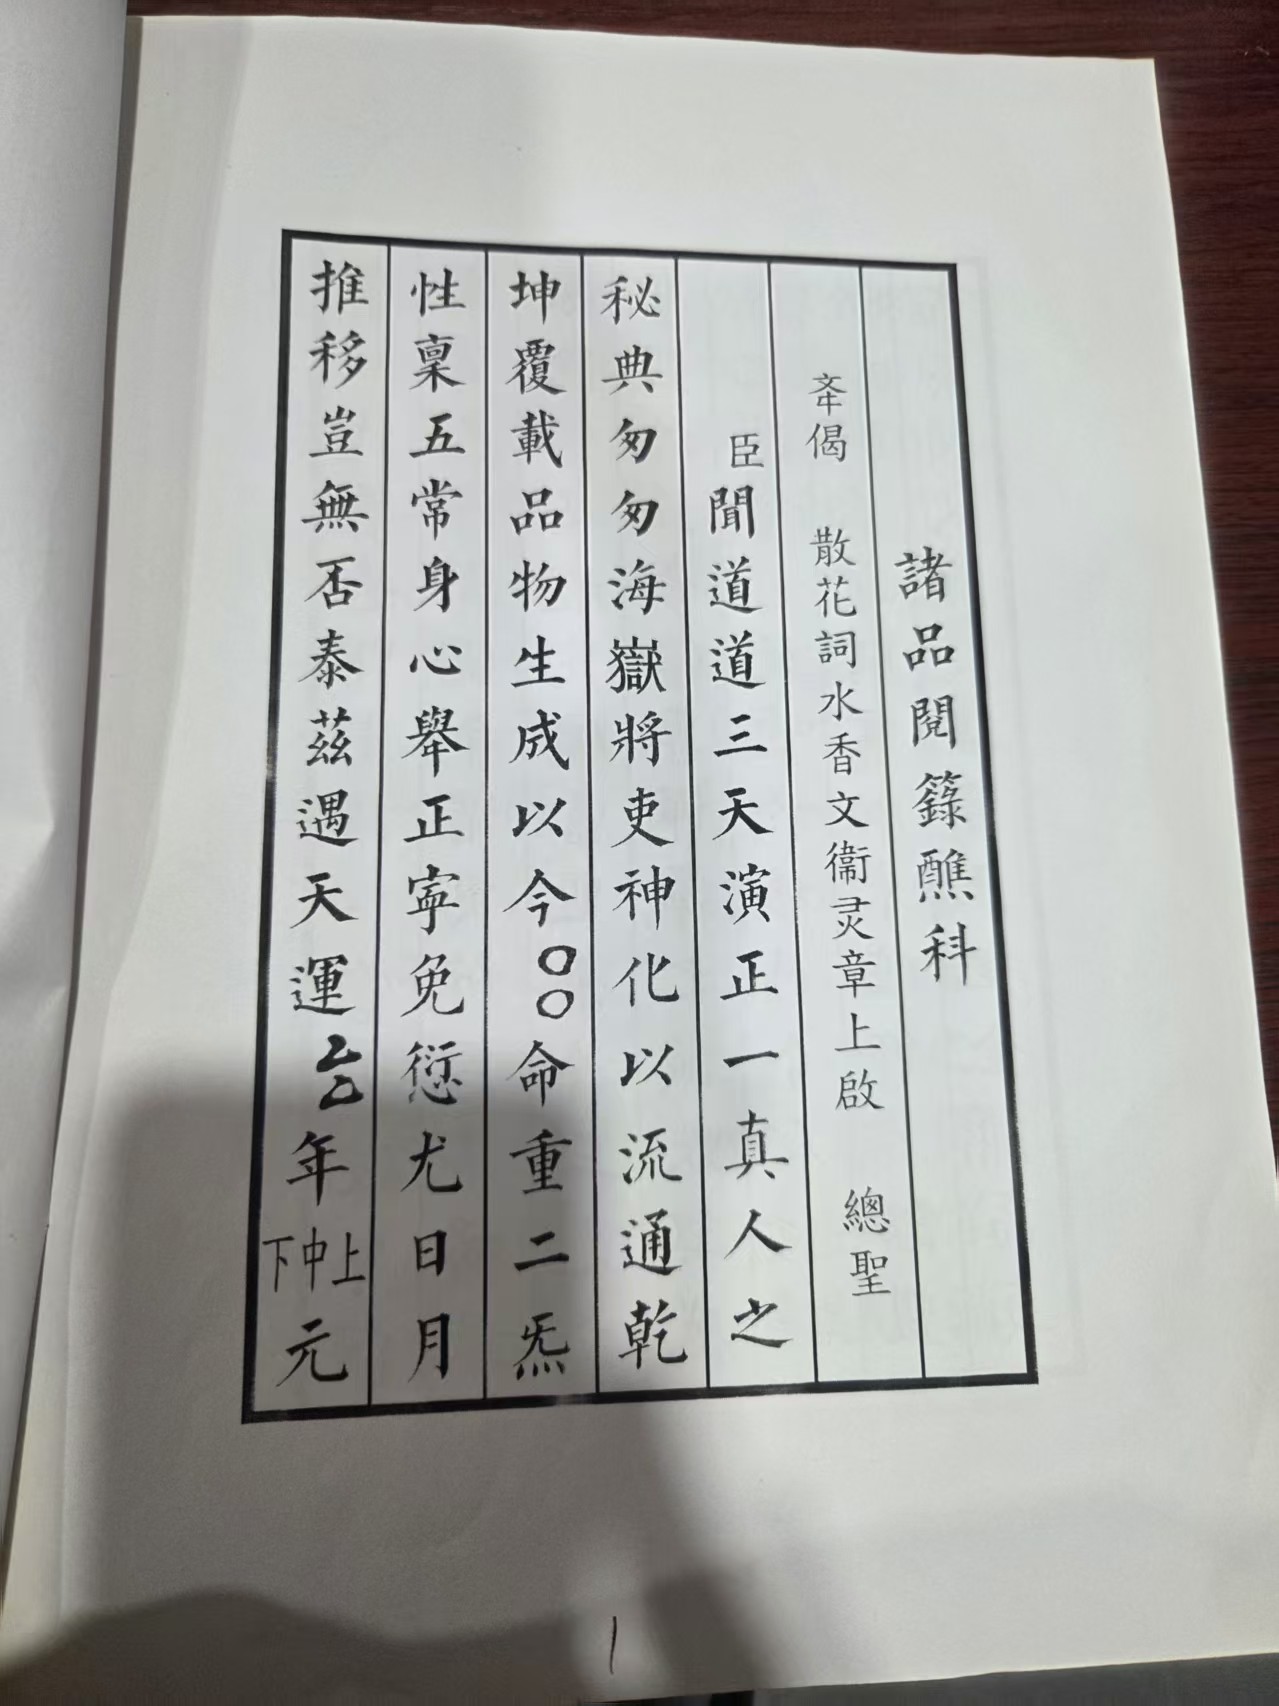 諸品閱籙醮科
夲偈　散花詞水香文衞灵章上啟　總聖
臣聞道道三天演正一真人之
秘典匆匆海嶽將吏神化以流通乾
坤覆載品物生成以今〇〇命重二炁
性稟五常身心舉正寧免愆尤日月
推移豈無否泰茲遇天運年上中下元
1